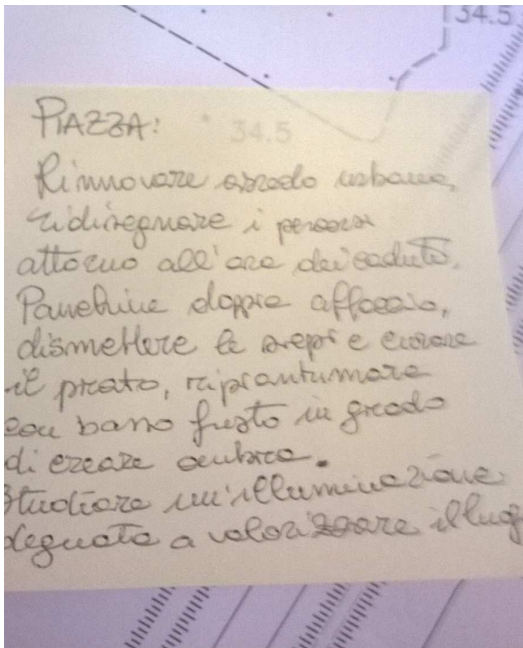 34.5
PIAZZA:
34.5
Rinnovare arredo urbano,
ridisegnare i percorsi
attorno all'ara dei caduti.
Panchine doppio affaccio,
dismettere le siepi e curare
il prato, ripiantumare
con basso fusto in grado
di creare ombra.
Studiare un'illuminazione
deguata a valorizzare il luog